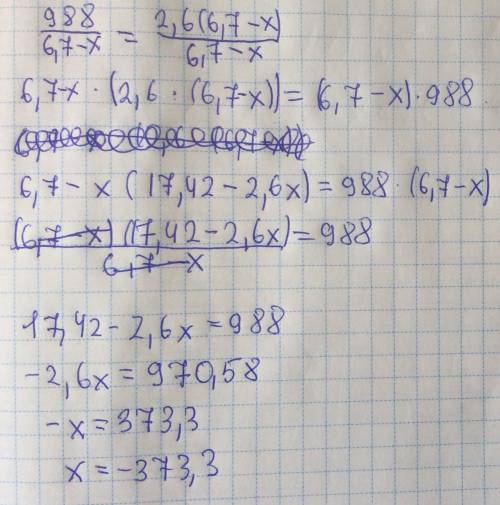 988/6,7-x = 2,6(6,7-x)/6,7-x
6,7-x · (2,6 · (6,7-x)) = (6,7-x) · 988
6,7 - x (17,42 - 2,6x) = 988 · (6,7-x)
(6,7-x) (17,42 - 2,6x)/6,7-x = 988
17,42 - 2,6x = 988
-2,6x = 970,58
-x = 373,3
x = -373,3